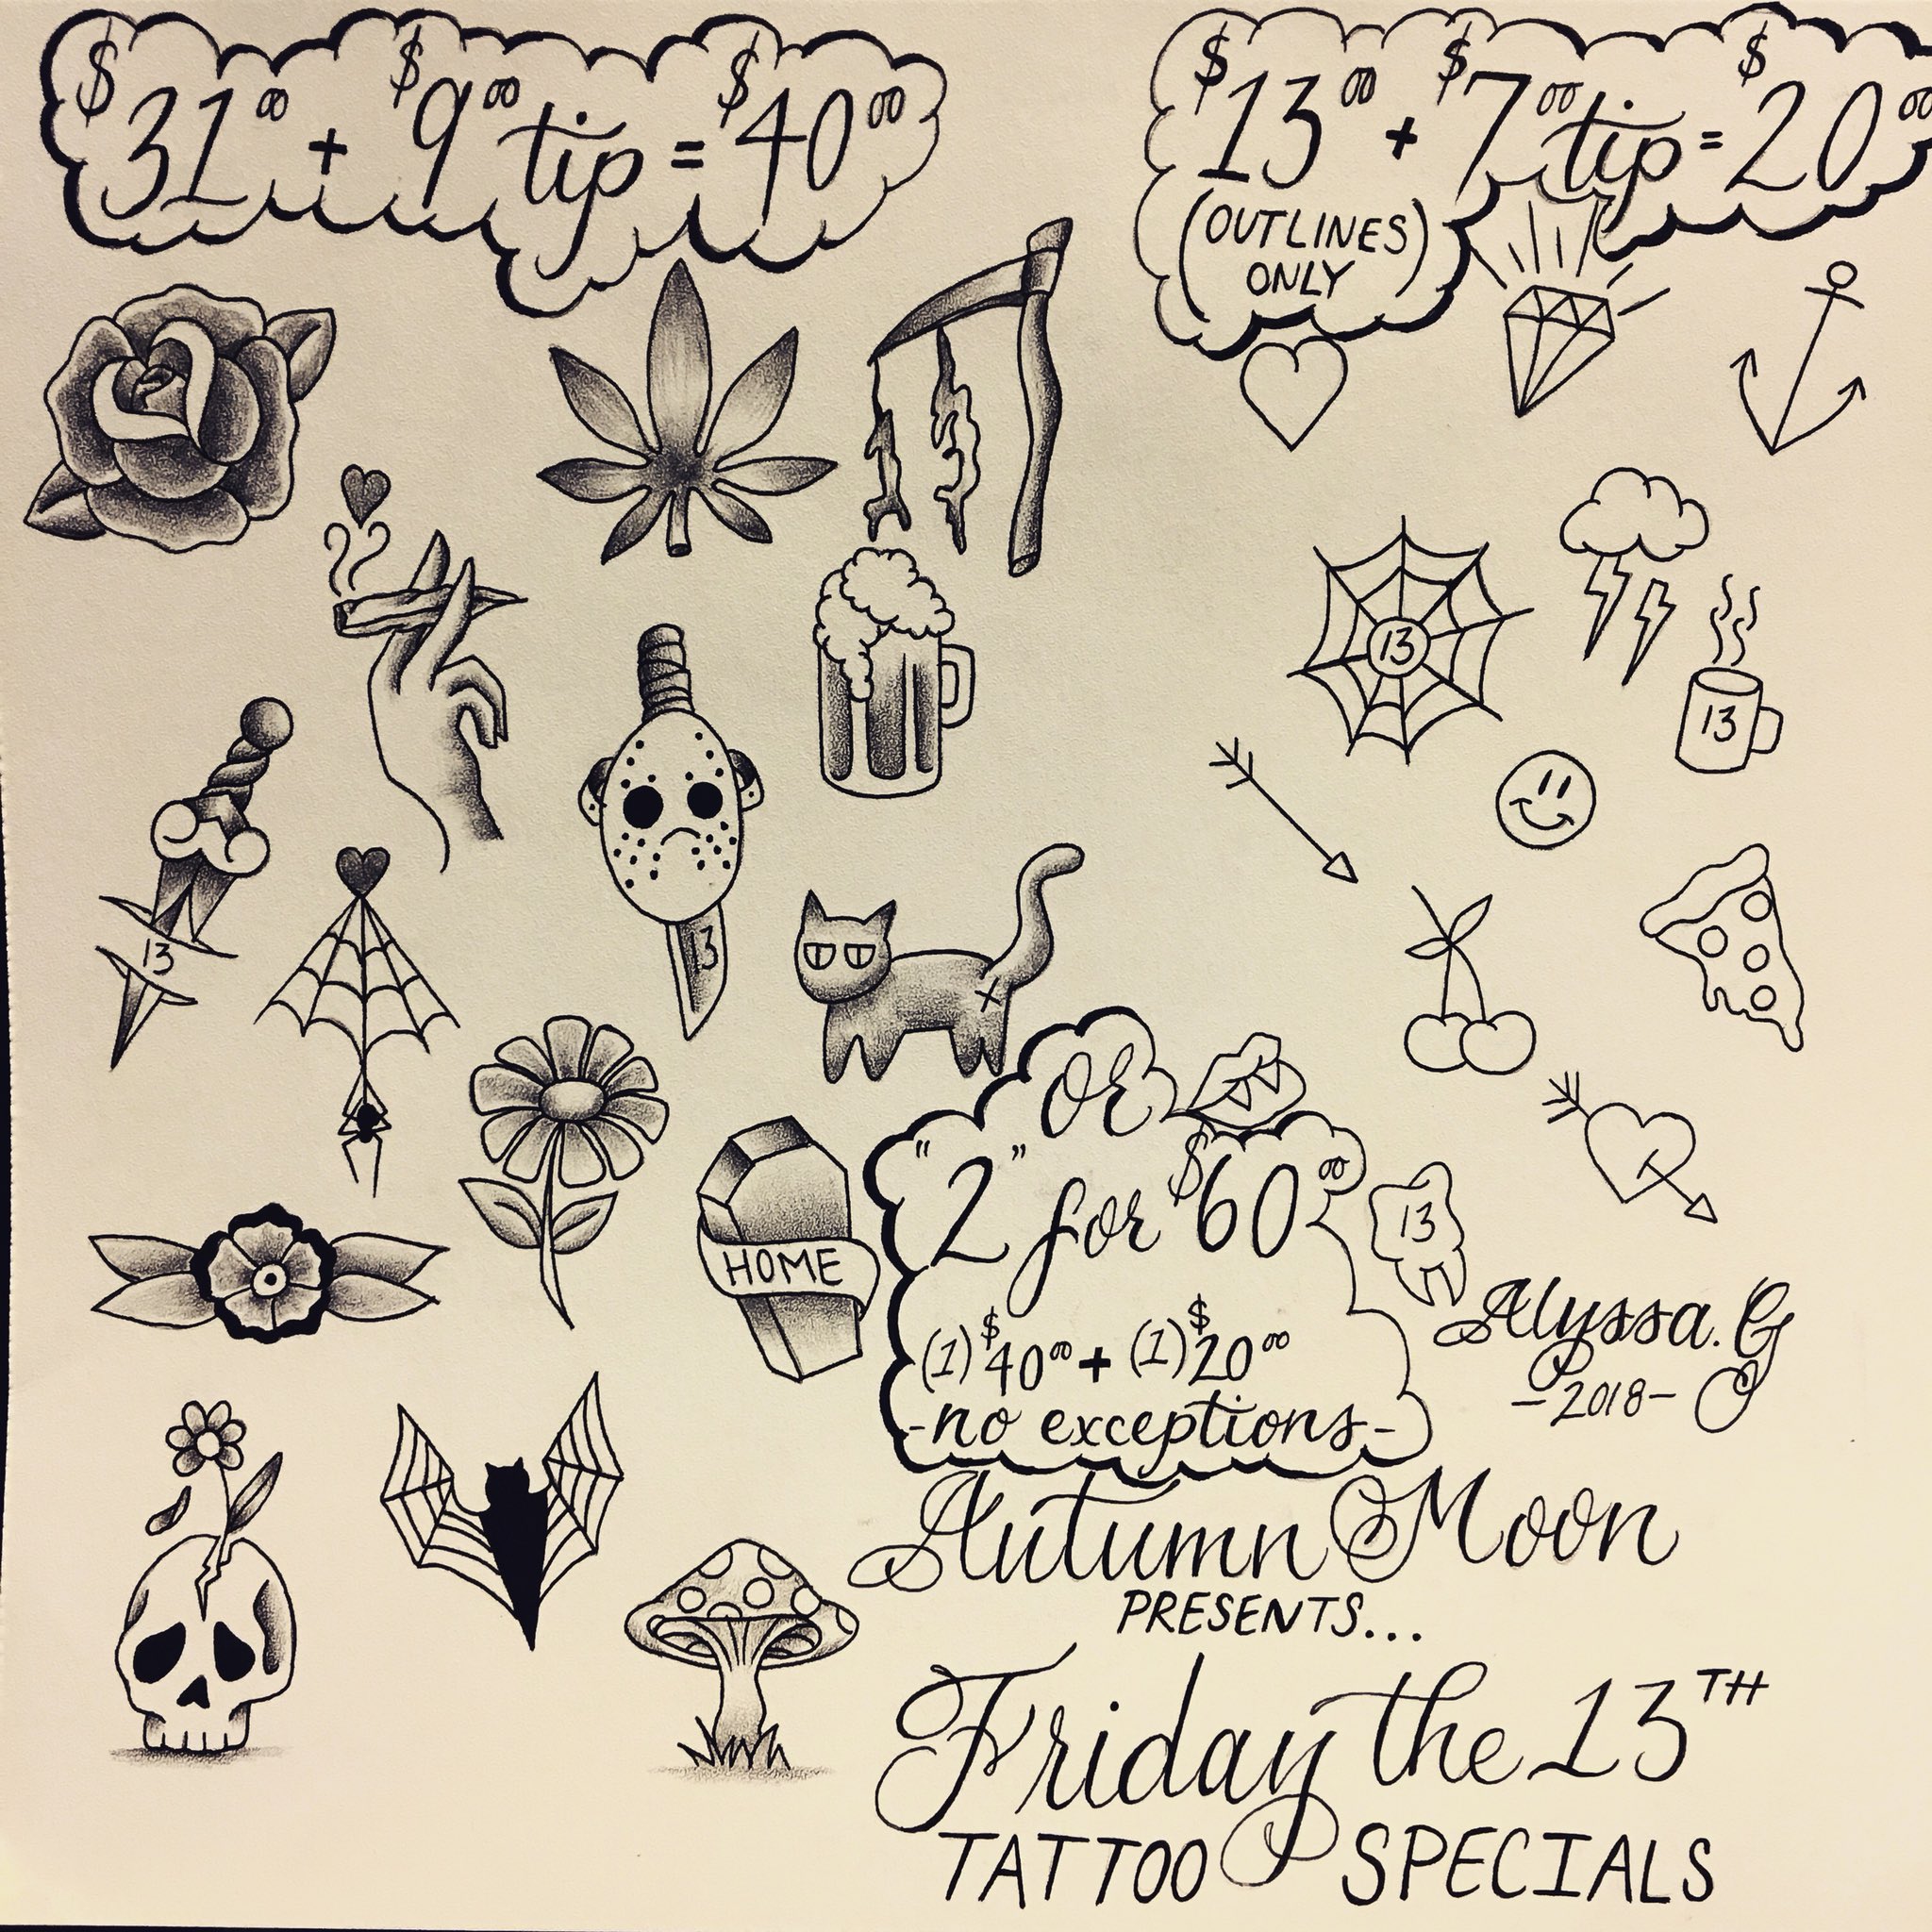 $31⁰⁰ + $9⁰⁰ tip = $40⁰⁰
$13⁰⁰ + $7⁰⁰ tip = $20⁰⁰
(OUTLINES
ONLY)
13
13
13
13
OR
"2" for $60⁰⁰
13
HOME
(1) $40⁰⁰ + (1) $20⁰⁰
-no exceptions-
Alyssa. G
-2018-
Autumn Moon
PRESENTS...
Friday the 13TH
TATTOO SPECIALS